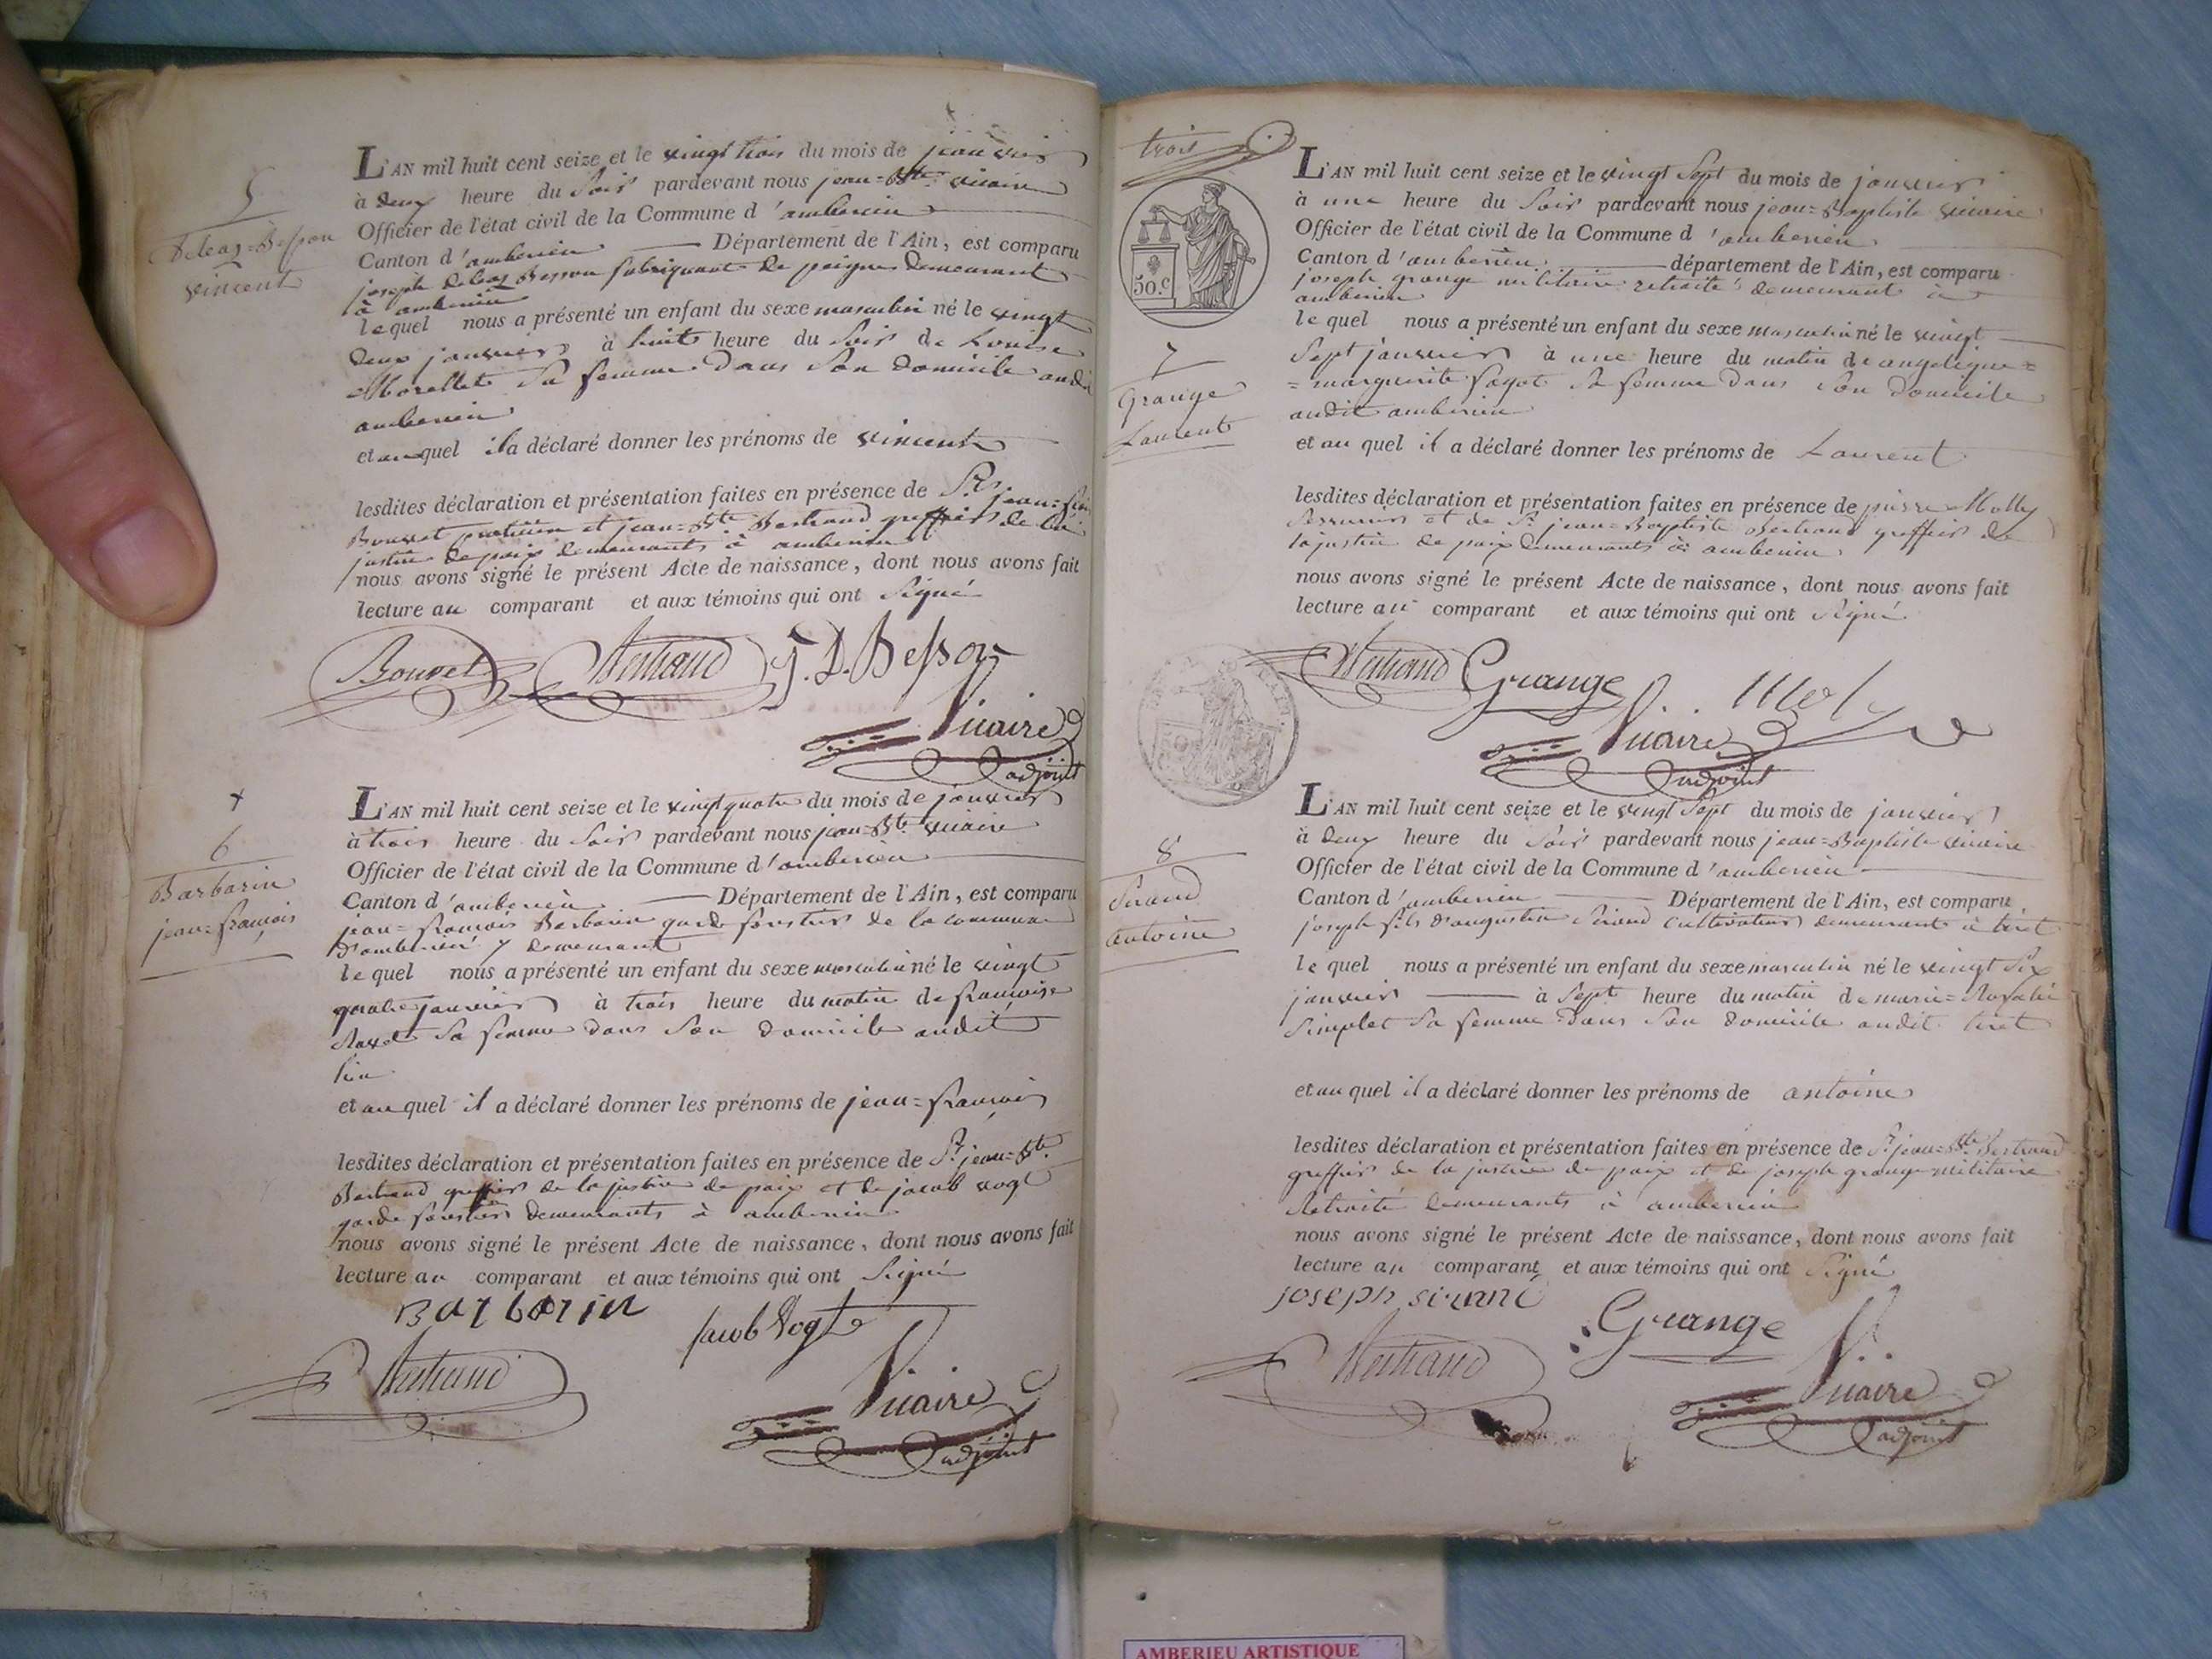 5
Deleaz=Besson
vincent
L'AN mil huit cent seize et le vingt trois du mois de janvier
à deux heure du soir pardevant nous jean=Bte vicaire
Officier de l'état civil de la Commune d'ambérieu
Canton d'ambérieu Département de l'Ain, est comparu
joseph deleaz Besson fabriquant de peignes demeurant
à ambérieu
lequel nous a présenté un enfant du sexe masculin né le vingt
deux janvier à huit heure du soir de Louise
Morellet sa femme dans son domicile audit
ambérieu
et auquel il a déclaré donner les prénoms de vincent
lesdites déclaration et présentation faites en présence de Srs jean=
Bouvet praticien et jean=Bte Bertrand greffier de la
justice de paix demeurants à ambérieu
nous avons signé le présent Acte de naissance, dont nous avons fait
lecture au comparant et aux témoins qui ont signé
Bouvet Bertrand J. D. Besson
Vicaire
adjoint
6
Barbarin
jean=françois
L'AN mil huit cent seize et le vingt quatre du mois de janvier
à trois heure du soir pardevant nous jean=Bte vicaire
Officier de l'état civil de la Commune d'ambérieu
Canton d'ambérieu Département de l'Ain, est comparu
jean=françois Barbarin garde forestier de la commune
d'ambérieu y demeurant
lequel nous a présenté un enfant du sexe masculin né le vingt
quatre janvier à trois heure du matin de françoise
Ravet sa femme dans son domicile audit
lieu
et auquel il a déclaré donner les prénoms de jean=françois
lesdites déclaration et présentation faites en présence de Sr jean=Bte
Bertrand greffier de la justice de paix et de jacob vogt
garde forestier demeurants à ambérieu
nous avons signé le présent Acte de naissance, dont nous avons fait
lecture au comparant et aux témoins qui ont signé
Barbarin Jacob Vogt
Bertrand Vicaire
adjoint
trois
50.c
L'AN mil huit cent seize et le vingt sept du mois de janvier
à une heure du soir pardevant nous jean=Baptiste vicaire
Officier de l'état civil de la Commune d'ambérieu
Canton d'ambérieu département de l'Ain, est comparu
joseph grange militaire retraité demeurant à
ambérieu
7
Grange
Laurent
le quel nous a présenté un enfant du sexe masculin né le vingt
sept janvier à une heure du matin de angelique=
=marguerite fagot sa femme dans son domicile
audit ambérieu
et au quel il a déclaré donner les prénoms de Laurent
lesdites déclaration et présentation faites en présence de pierre Molly
serrurier et de Sr jean=Baptiste Bertrand greffier de
la justice de paix demeurants à ambérieu
nous avons signé le présent Acte de naissance, dont nous avons fait
lecture au comparant et aux témoins qui ont signé
Bertrand Grange
Vicaire
adjoint
8
Sirand
antoine
L'AN mil huit cent seize et le vingt sept du mois de janvier
à deux heure du soir pardevant nous jean=Baptiste vicaire
Officier de l'état civil de la Commune d'ambérieu
Canton d'ambérieu Département de l'Ain, est comparu
joseph fils d'augustin Sirand cultivateur demeurant à tiret
le quel nous a présenté un enfant du sexe masculin né le vingt six
janvier à sept heure du matin de marie=Rosalie
Simplet sa femme dans son domicile audit tiret
et au quel il a déclaré donner les prénoms de antoine
lesdites déclaration et présentation faites en présence de Sr jean=Bte Bertrand
greffier de la justice de paix et de joseph grange militaire
Retraité demeurants à ambérieu
nous avons signé le présent Acte de naissance, dont nous avons fait
lecture au comparant et aux témoins qui ont signé
joseph sirand Grange
Bertrand Vicaire
adjoint
AMBERIEU ARTISTIQUE